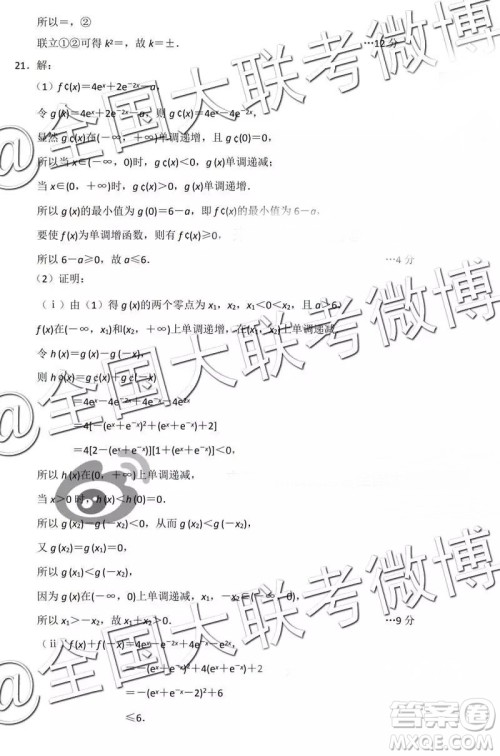 所以=，②
联立①②可得 k²=，故 k=±.
…12 分
21. 解：
（1）f¢(x)=4eˣ+2e⁻²ˣ−a，
令 g(x)=4eˣ+2e⁻²ˣ−a，则 g¢(x)=4eˣ−4e⁻²ˣ，
显然 g¢(x)在(−∞，+∞)单调递增，且 g¢(0)=0，
所以当 x∈(−∞，0)时，g¢(x)<0，g(x)单调递减；
当 x∈(0，+∞)时，g¢(x)>0，g(x)单调递增.
所以 g(x)的最小值为 g(0)=6−a，即 f¢(x)的最小值为 6−a，
要使 f(x)为单调增函数，则有 f¢(x)≥0，
所以 6−a≥0，故 a≤6.
…4 分
（2）证明：
（ⅰ）由（1）得 g(x)的两个零点为 x₁，x₂，x₁<0<x₂，且 a>6，
f(x)在(−∞，x₁)和(x₂，+∞)上单调递增，
令 h(x)=g(x)−g(−x)，
则 h¢(x)=g¢(x)+g¢(−x)
=4eˣ−4e⁻²ˣ+4e⁻ˣ−4e²ˣ
=4[−(eˣ+e⁻ˣ)²+(eˣ+e⁻ˣ)+2]
=4[2−(eˣ+e⁻ˣ)][1+(eˣ+e⁻ˣ)]<0，
所以 h(x)在单调递减，
当 x>0 时，h(x)<h(0)=0.
所以 g(x₂)−g(−x₂)<0，从而 g(x₂)<g(−x₂)，
又 g(x₁)=g(x₂)=0，
所以 g(x₁)<g(−x₂)，
因为 g(x)在(−∞，0)上单调递减，x₁，−x₂∈(−∞，0)，
所以 x₁>−x₂，故 x₁+x₂>0.
…9 分
（ⅱ）f(x)+f(−x)=4eˣ−e⁻²ˣ+4e⁻ˣ−e²ˣ
=−(eˣ+e⁻ˣ)²+4(eˣ+e⁻ˣ)+2
=−(eˣ+e⁻ˣ−2)²+6
≤6.
@全国大联考微博
@全国大联考微博
答案圈
MXQE.COM